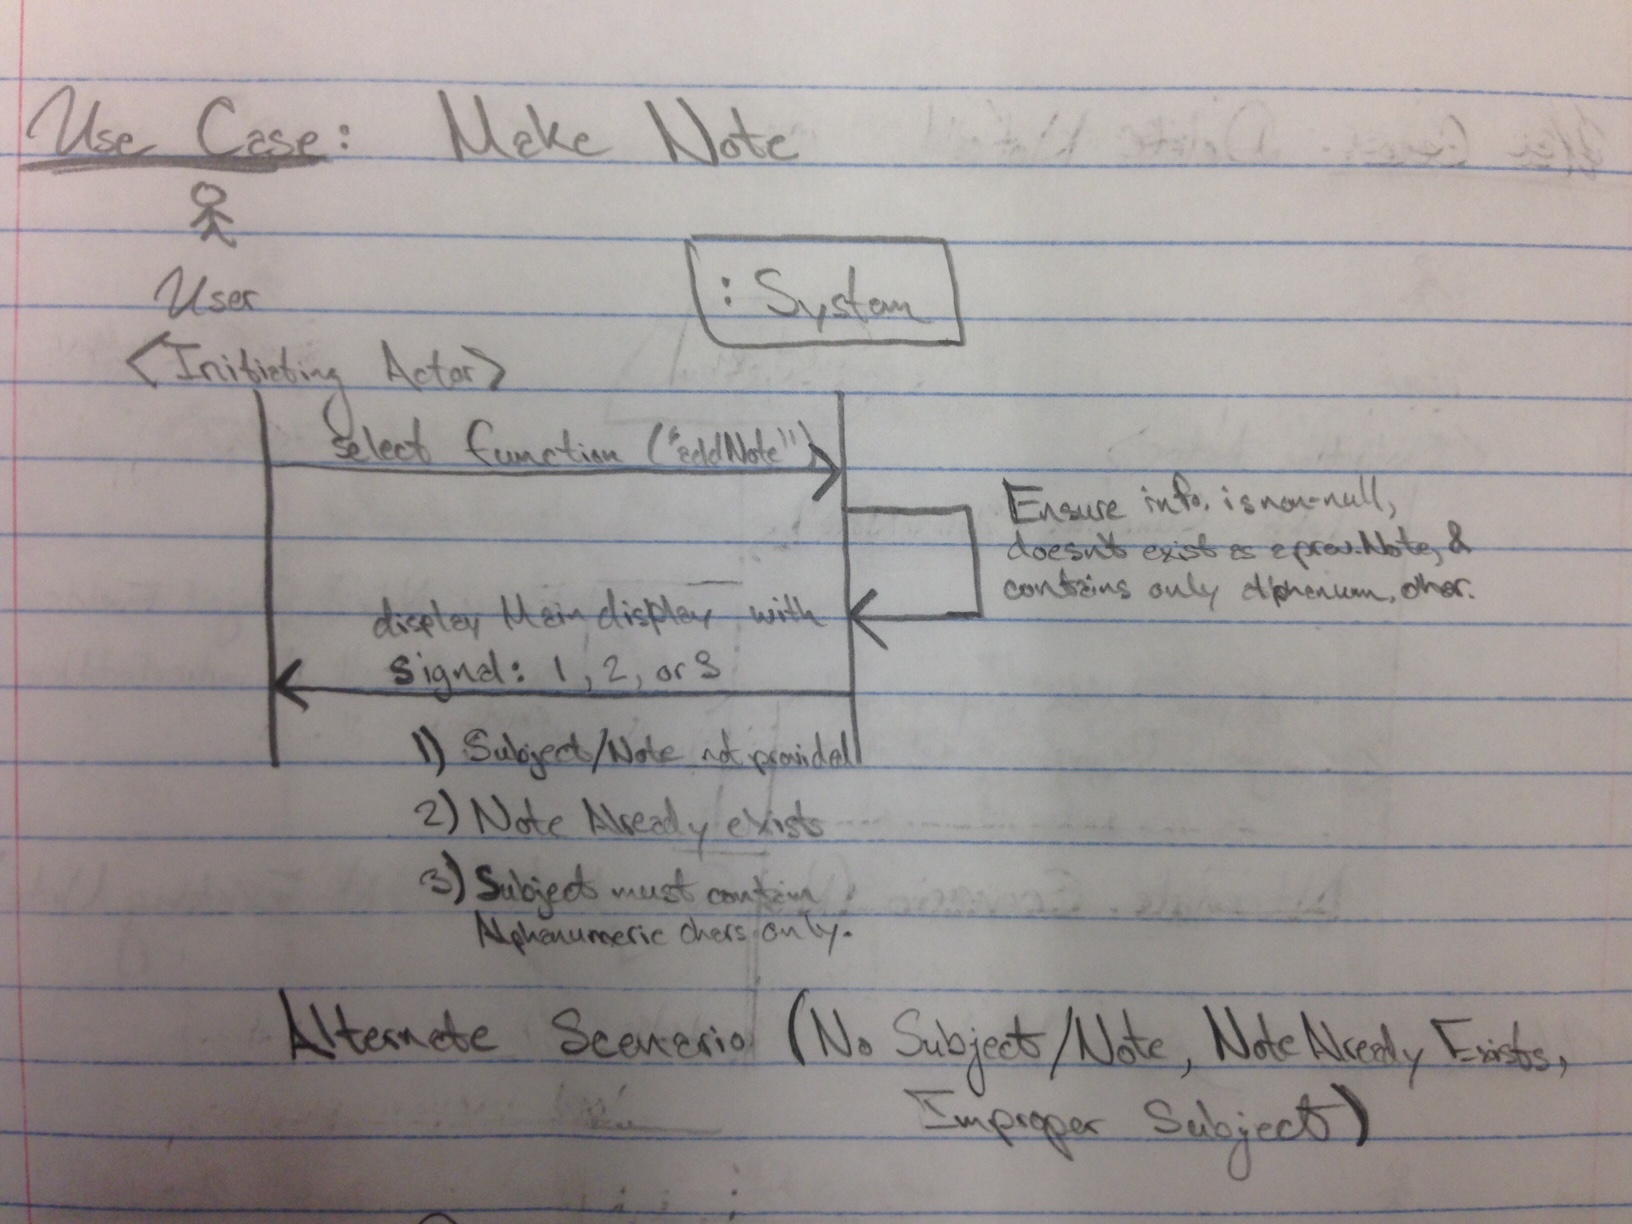 Use Case: Make Note
User
: System
<Initiating Actor>
select function ("addNote")
Ensure info. is non-null,
doesn't exist as a prev. Note, &
contains only alphanum. char.
display Main display with
signal: 1, 2, or 3
1) Subject/Note not provided
2) Note Already exists
3) Subject must contain
Alphanumeric chars only.
Alternate Scenario (No Subject/Note, Note Already Exists,
Improper Subject)